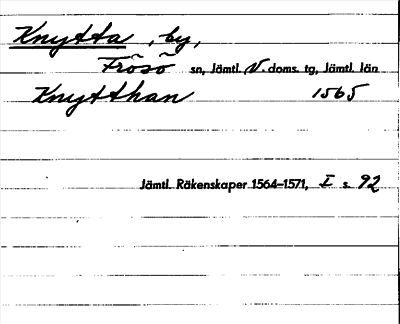 Knytta, by,
Frösö sn, Jämtl. V. doms. tg, Jämtl. län
Knytthan 1565
Jämtl. Räkenskaper 1564–1571, I s. 92